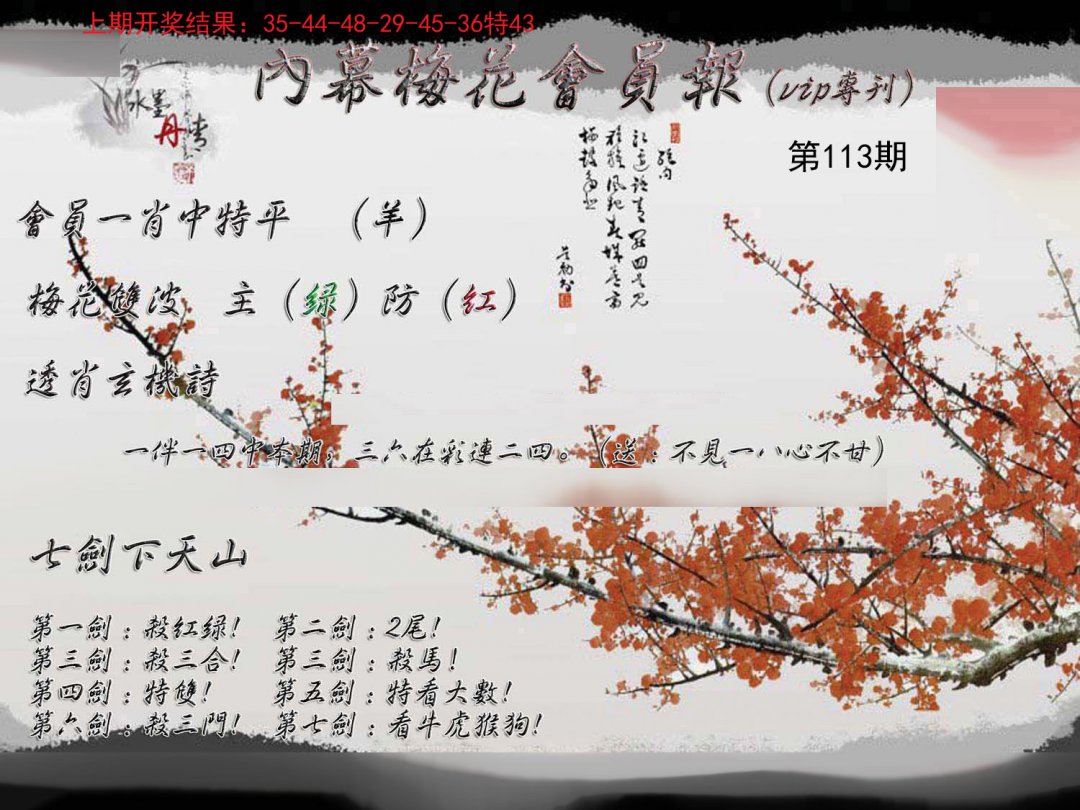 上期开奖结果：35-44-48-29-45-36特43
內幕梅花會員報（vip專刊）
水墨丹青
第113期
會員一肖中特平 （羊）
梅花雙波 主（绿）防（红）
透肖玄機詩
一伴一四中本期，三六在彩連二四。（送：不見一八心不甘）
七劍下天山
第一劍：殺红绿！ 第二劍：2尾！
第三劍：殺三合！ 第三劍：殺馬！
第四劍：特雙！ 第五劍：特看大數！
第六劍：殺三門！ 第七劍：看牛虎猴狗！